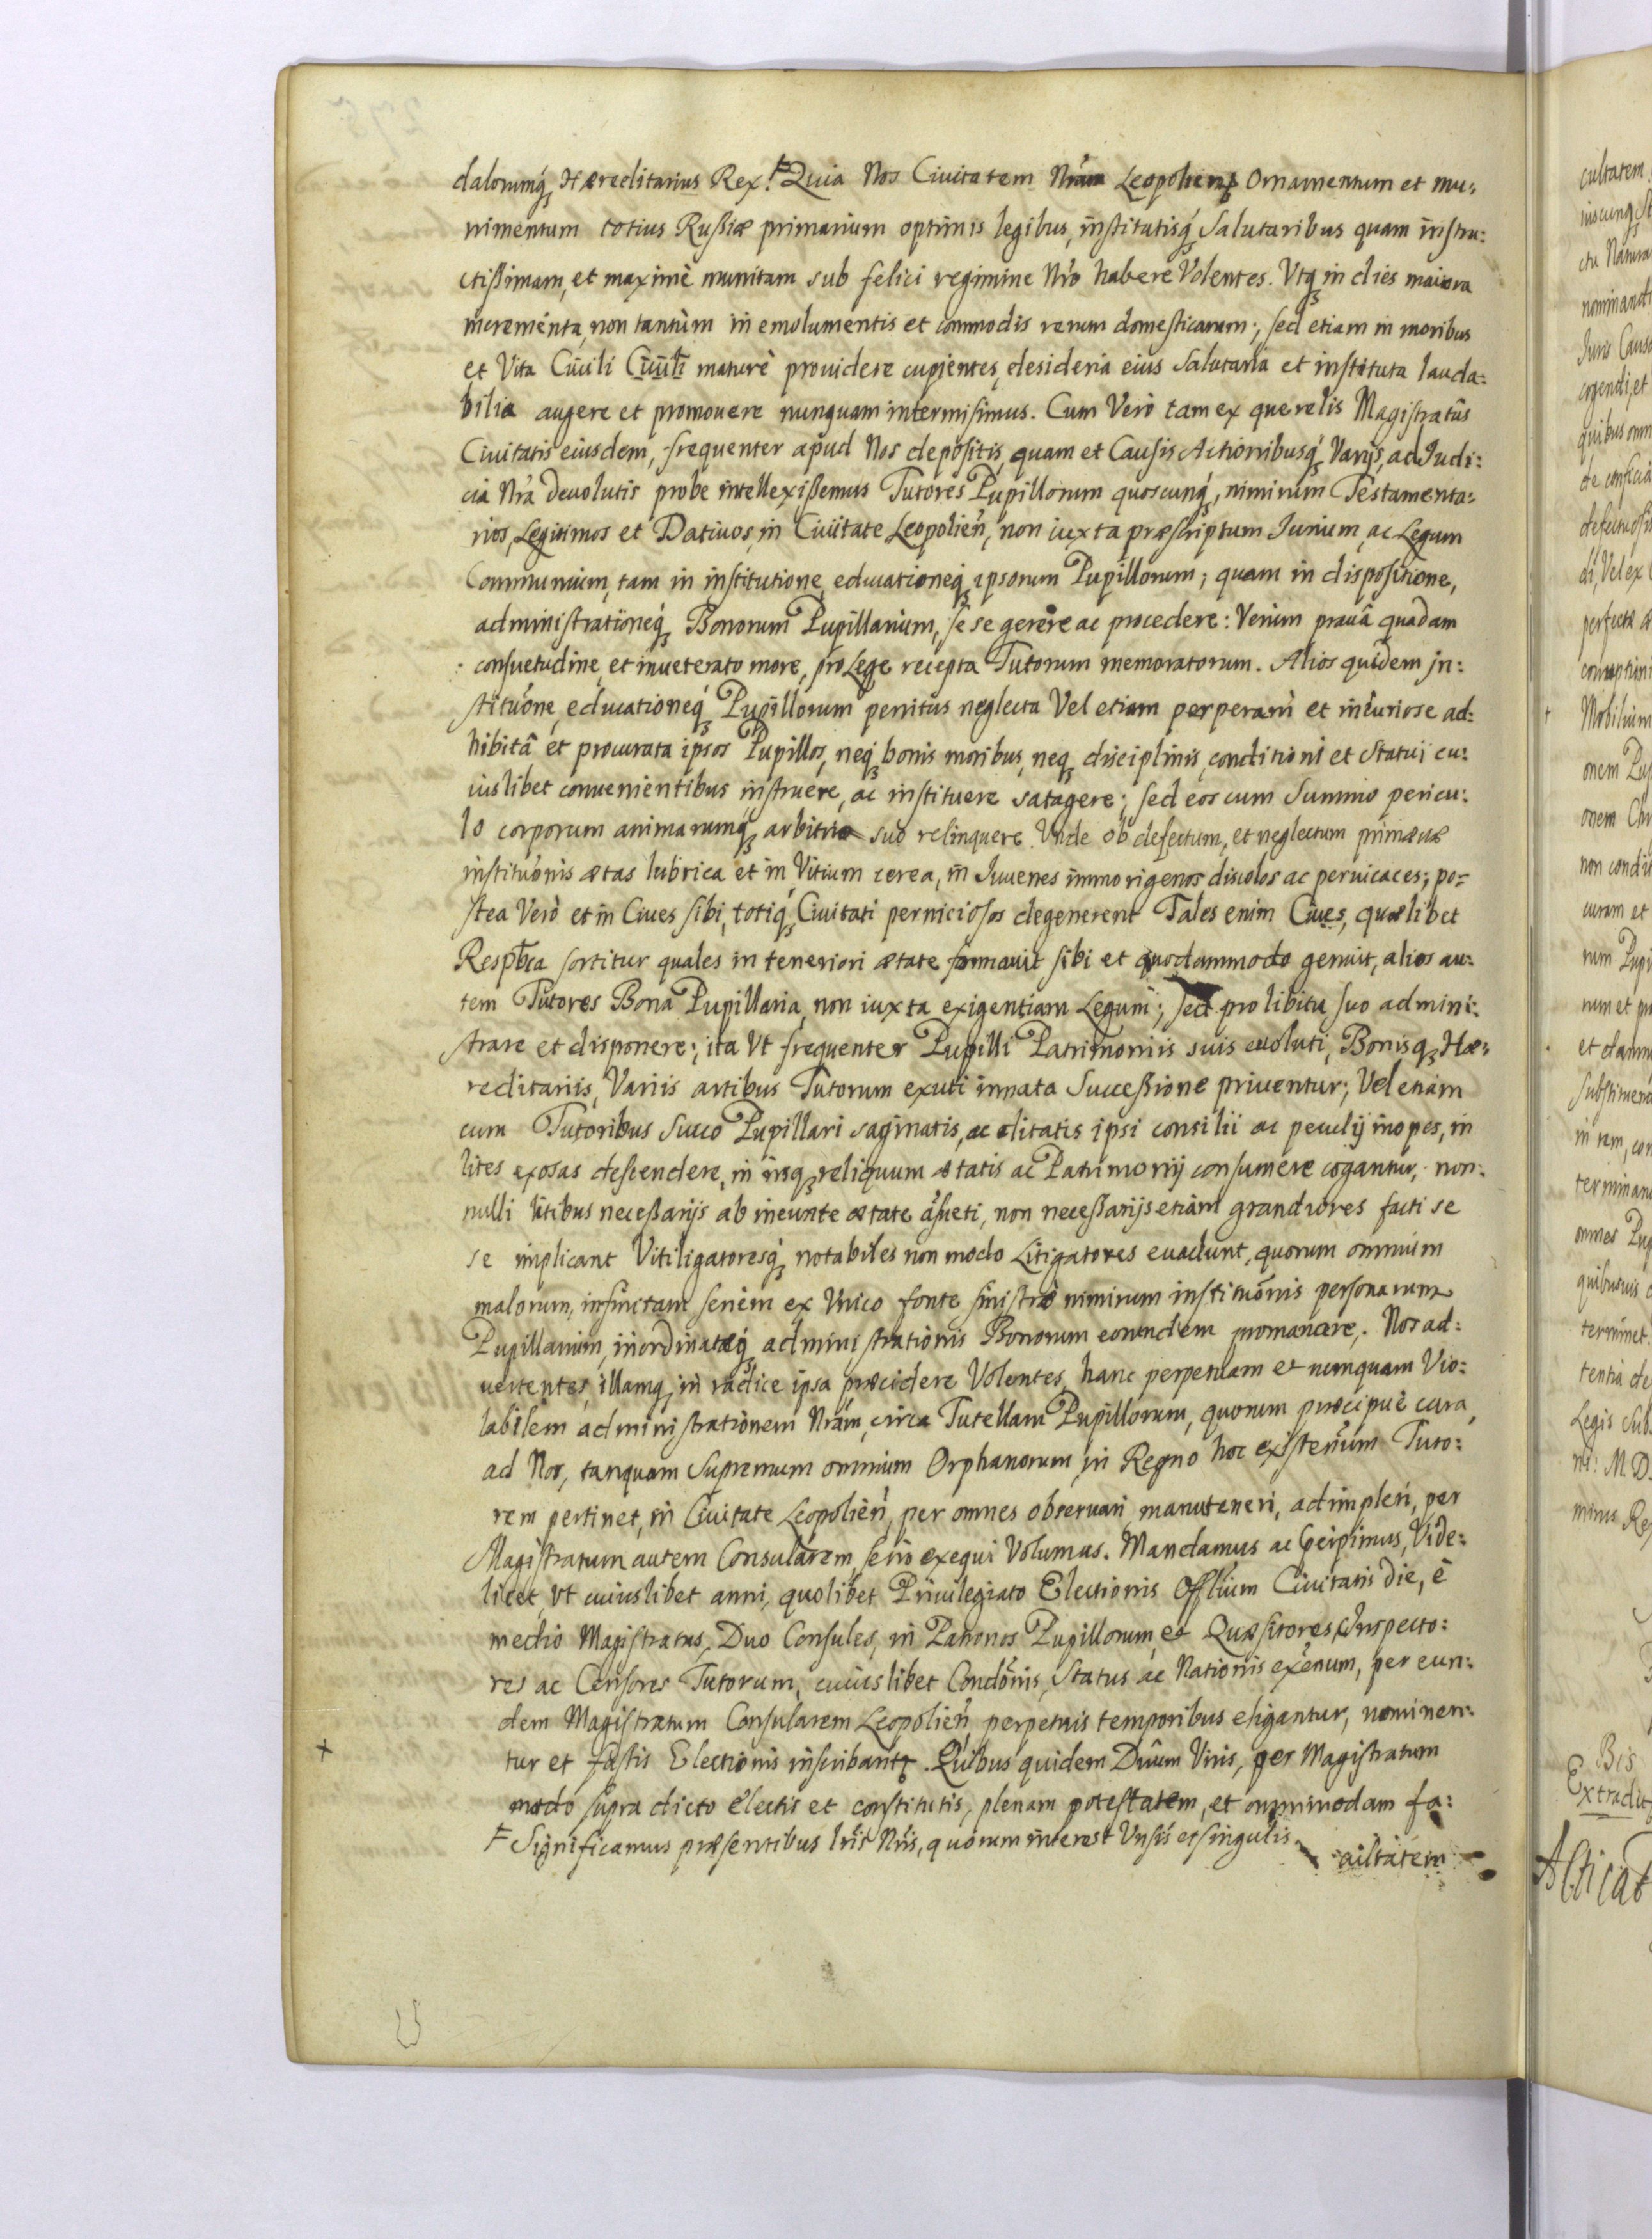 dalorumq́ Hæreditarius Rex. Ŧ Quia Nos Ciuitatem Nr̃am Leopolien̄ Ornamentum et mu:
nimentum totius Rußiæ primarium optimis legibus, institutisq́ Salutaribus quam instru:
ctißimam, et maximè munitam sub felici regimine Nr̃o habere Volentes. Vtq in dies maiora
incrementa, non tantùm in emolumentis et commodis rerum domesticarum; sed etiam in moribus
et Vita Ciuili Ciuili maturè prouidere cupientes, desideria eius Salutaria et instituta lauda:
bilia augere et promouere nunquam intermisimus. Cum Verò tam ex querelis Magistratûs
Ciuitatis eiusdem, frequenter apud Nos depositis, quam et Causis Actionibusq́ Varijs, ad Judi:
cia Nr̃a deuolutis probe intellexißemus Tutores Pupillorum quoscunq́, nimirum Testamenta:
rios, Legitimos et Datiuos, in Ciuitate Leopolien̄, non iuxta præscriptum Jurium, ac Legum
Communium, tam in institutione, educationeq́ ipsorum Pupillorum; quam in dispositione,
administrationeq́ Bonorum Pupillarium, se se gerere ac procedere: Verùm prauâ quadam
consuetudine, et inueterato more, pro Lege recepta Tutorum memoratorum. Alios quidem in:
stituōne, educationeq́ Pupillorum penitus neglecta Vel etiam perperam et iniuriose ad:
hibitâ et procurata ipsos Pupillos, neq bonis moribus, neq disciplinis, conditioni et Statui cu:
iuslibet conuenientibus instruere, ac instituere satagere; sed eos cum Summo pericu:
lo corporum animarumq́ arbitrio suo relinquere. Vnde ob defectum, et neglectum primæuæ
instituōnis ætas lubrica et in Vitium cerea, in Juuenes immorigeros discolos ac peruicaces; po:
stea Verò et in Ciues sibi, totiq́ Ciuitati perniciosos degenerent Tales enim Ciues, quælibet
Respb̃ca sortitur quales in teneriori ætate formauit sibi et quodammodo genuit, alios au:
tem Tutores Bona Pupillaria, non iuxta exigentiam Legum; sed pro libitu suo admini:
strare et disponere; ita Vt frequenter Pupilli Patrimoniis suis euoluti, Bonisq Hæ:
reditariis, Variis artibus Tutorum exuti innata Successione priuentur; Vel etiam
cum Tutoribus Succo Pupillari saginatis, ac ditatis ipsi consilii ac peculij inopes, in
lites exosas descendere, in iisq reliquum ætatis ac Patrimonij consumere cogantur, non:
nulli litibus neceßarijs ab ineunte ætate aßueti, non neceßarijs etiam grandiores facti se
se implicant Vitiligatoresq́ notabiles non modo Litigatores euadunt, quorum omnium
malorum, infinitam seriem ex Vnico fonte sinistræ nimirum instituōnis personarum
Pupillarium, inordinatæq́ administrationis Bonorum eorundem promanare. Nos ad:
uertentes, illamq in radice ipsa præcidere Volentes, hanc perpetuam et nunquam Vio:
labilem administrationem Nr̃am, circa Tutellam Pupillorum, quorum præcipuè cura,
ad Nos, tanquam Supremum omnium Orphanorum in Regno hoc existen̄um Tuto:
rem pertinet, in Ciuitate Leopolien̄ per omnes obseruari, manuteneri, adimpleri, per
Magistratum autem Consularem, serio exequi Volumus. Mandamus ac Percipimus, Vide:
licet, Vt cuiuslibet anni, quolibet Priuilegiato Electionis Offlium Ciuitatis die, è
medio Magistratus, Duo Consules, in Patronos Pupillorum et Quæsitores, Inspecto:
res ac Censores Tutorum, cuiuslibet Condōnis, Status ac Nationis exēnum, per eun:
dem Magistratum Consularem Leopolien̄, perpetuis temporibus eligantur, nominen:
tur et fastis Electionis inscribant̃. Quibus quidem Duum Viris, per Magistratum
modo supra dicto electis et constitutis, plenam potestatem, et omnimodam fa:
Ŧ Significamus præsentibus lr̃is Nr̃is, quorum interest Vnīsis et singulis
cultatem